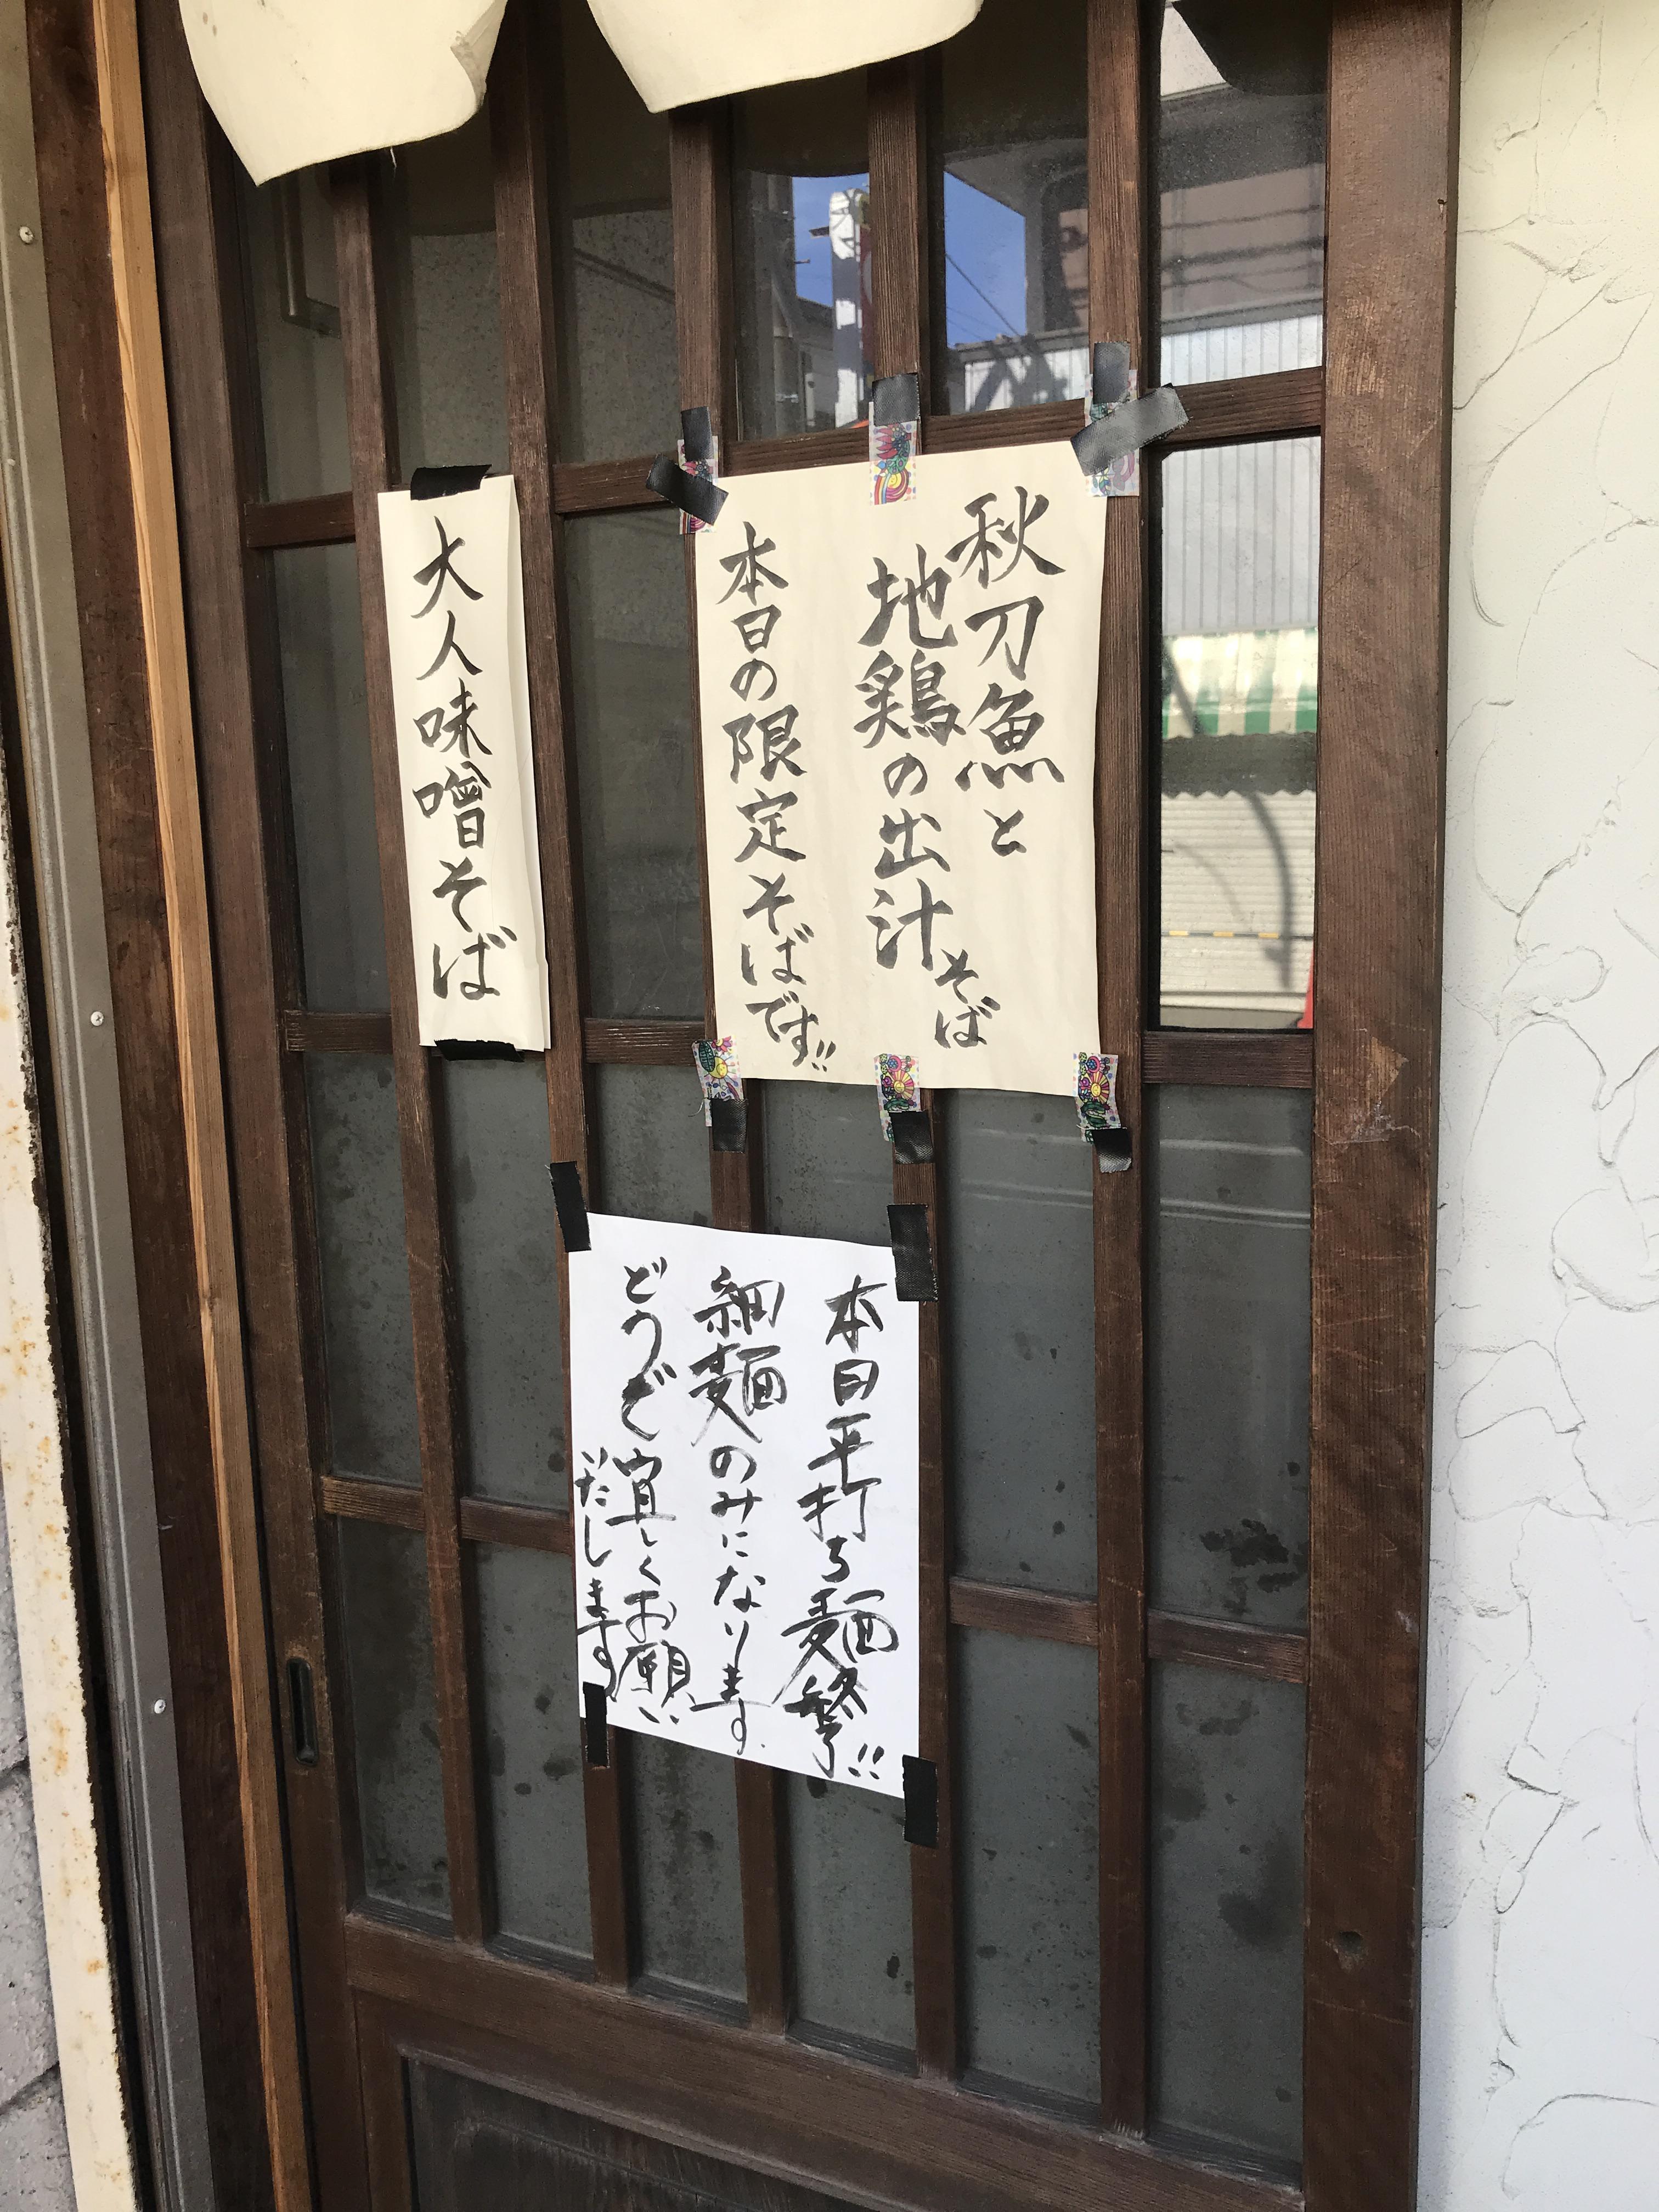 秋刀魚と
地鶏の出汁そば
本日の限定そばです!!
大人味噌そば
本日平打ち麺終了!!
細麺のみになります.
どうぞ宜しくお願い
いたします